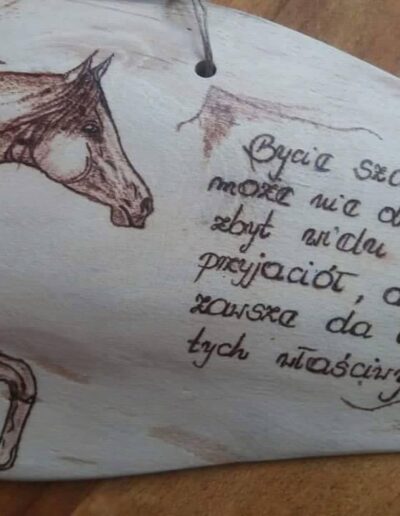 Bycie szc
może nie d
zbyt wielu
przyjaciół, a
zawsze da
tych właściwy